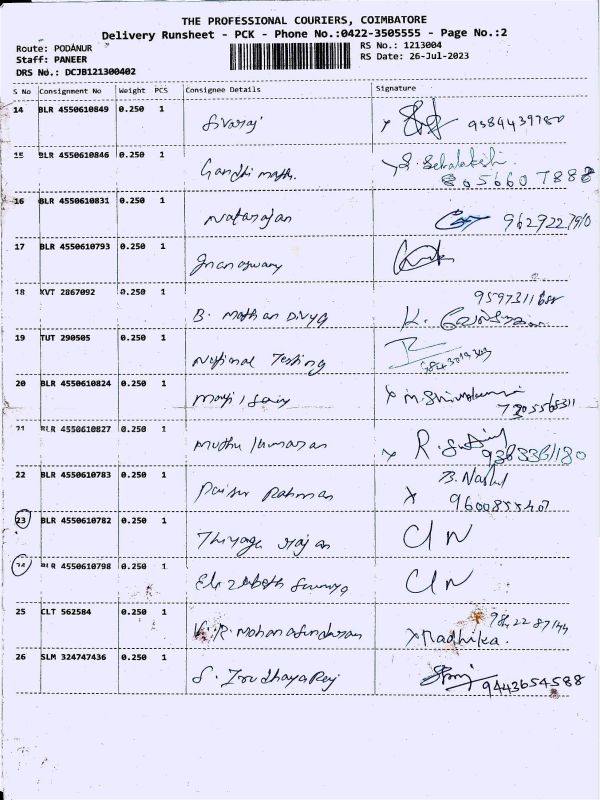 THE PROFESSIONAL COURIERS, COIMBATORE
Delivery Runsheet - PCK - Phone No.:0422-3505555 - Page No.:2
Route: PODANUR
Staff: PANEER
DRS No.: DCJB121300402
RS No.: 1213004
RS Date: 26-Jul-2023
S No Consignment No Weight PCS Consignee Details Signature
14 BLR 4550610849 0.250 1
Sivaraj 9384439780
15 BLR 4550610846 0.250 1
Gandhi math. 8056607888
16 BLR 4550610831 0.250 1
Natarajan 9629227910
17 BLR 4550610793 0.250 1
Gnanaswamy
18 KVT 2867092 0.250 1
B. Mathan Divya K.
19 TUT 290505 0.250 1
National Testing
20 BLR 4550610824 0.250 1
x M.
7305565311
21 BLR 4550610827 0.250 1
Muthu kumaran x R.
22 BLR 4550610783 0.250 1
Rahman x
23 BLR 4550610782 0.250 1
Thiyaga rajan C/N
24 BLR 4550610798 0.250 1
Elizabeth C/N
25 CLT 562584 0.250 1
V. R. Mohanasundaram x Radhika.
26 SLM 324747436 0.250 1
S. Irudhayaraj 9443654588